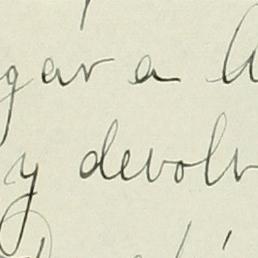 gar a
y devolv